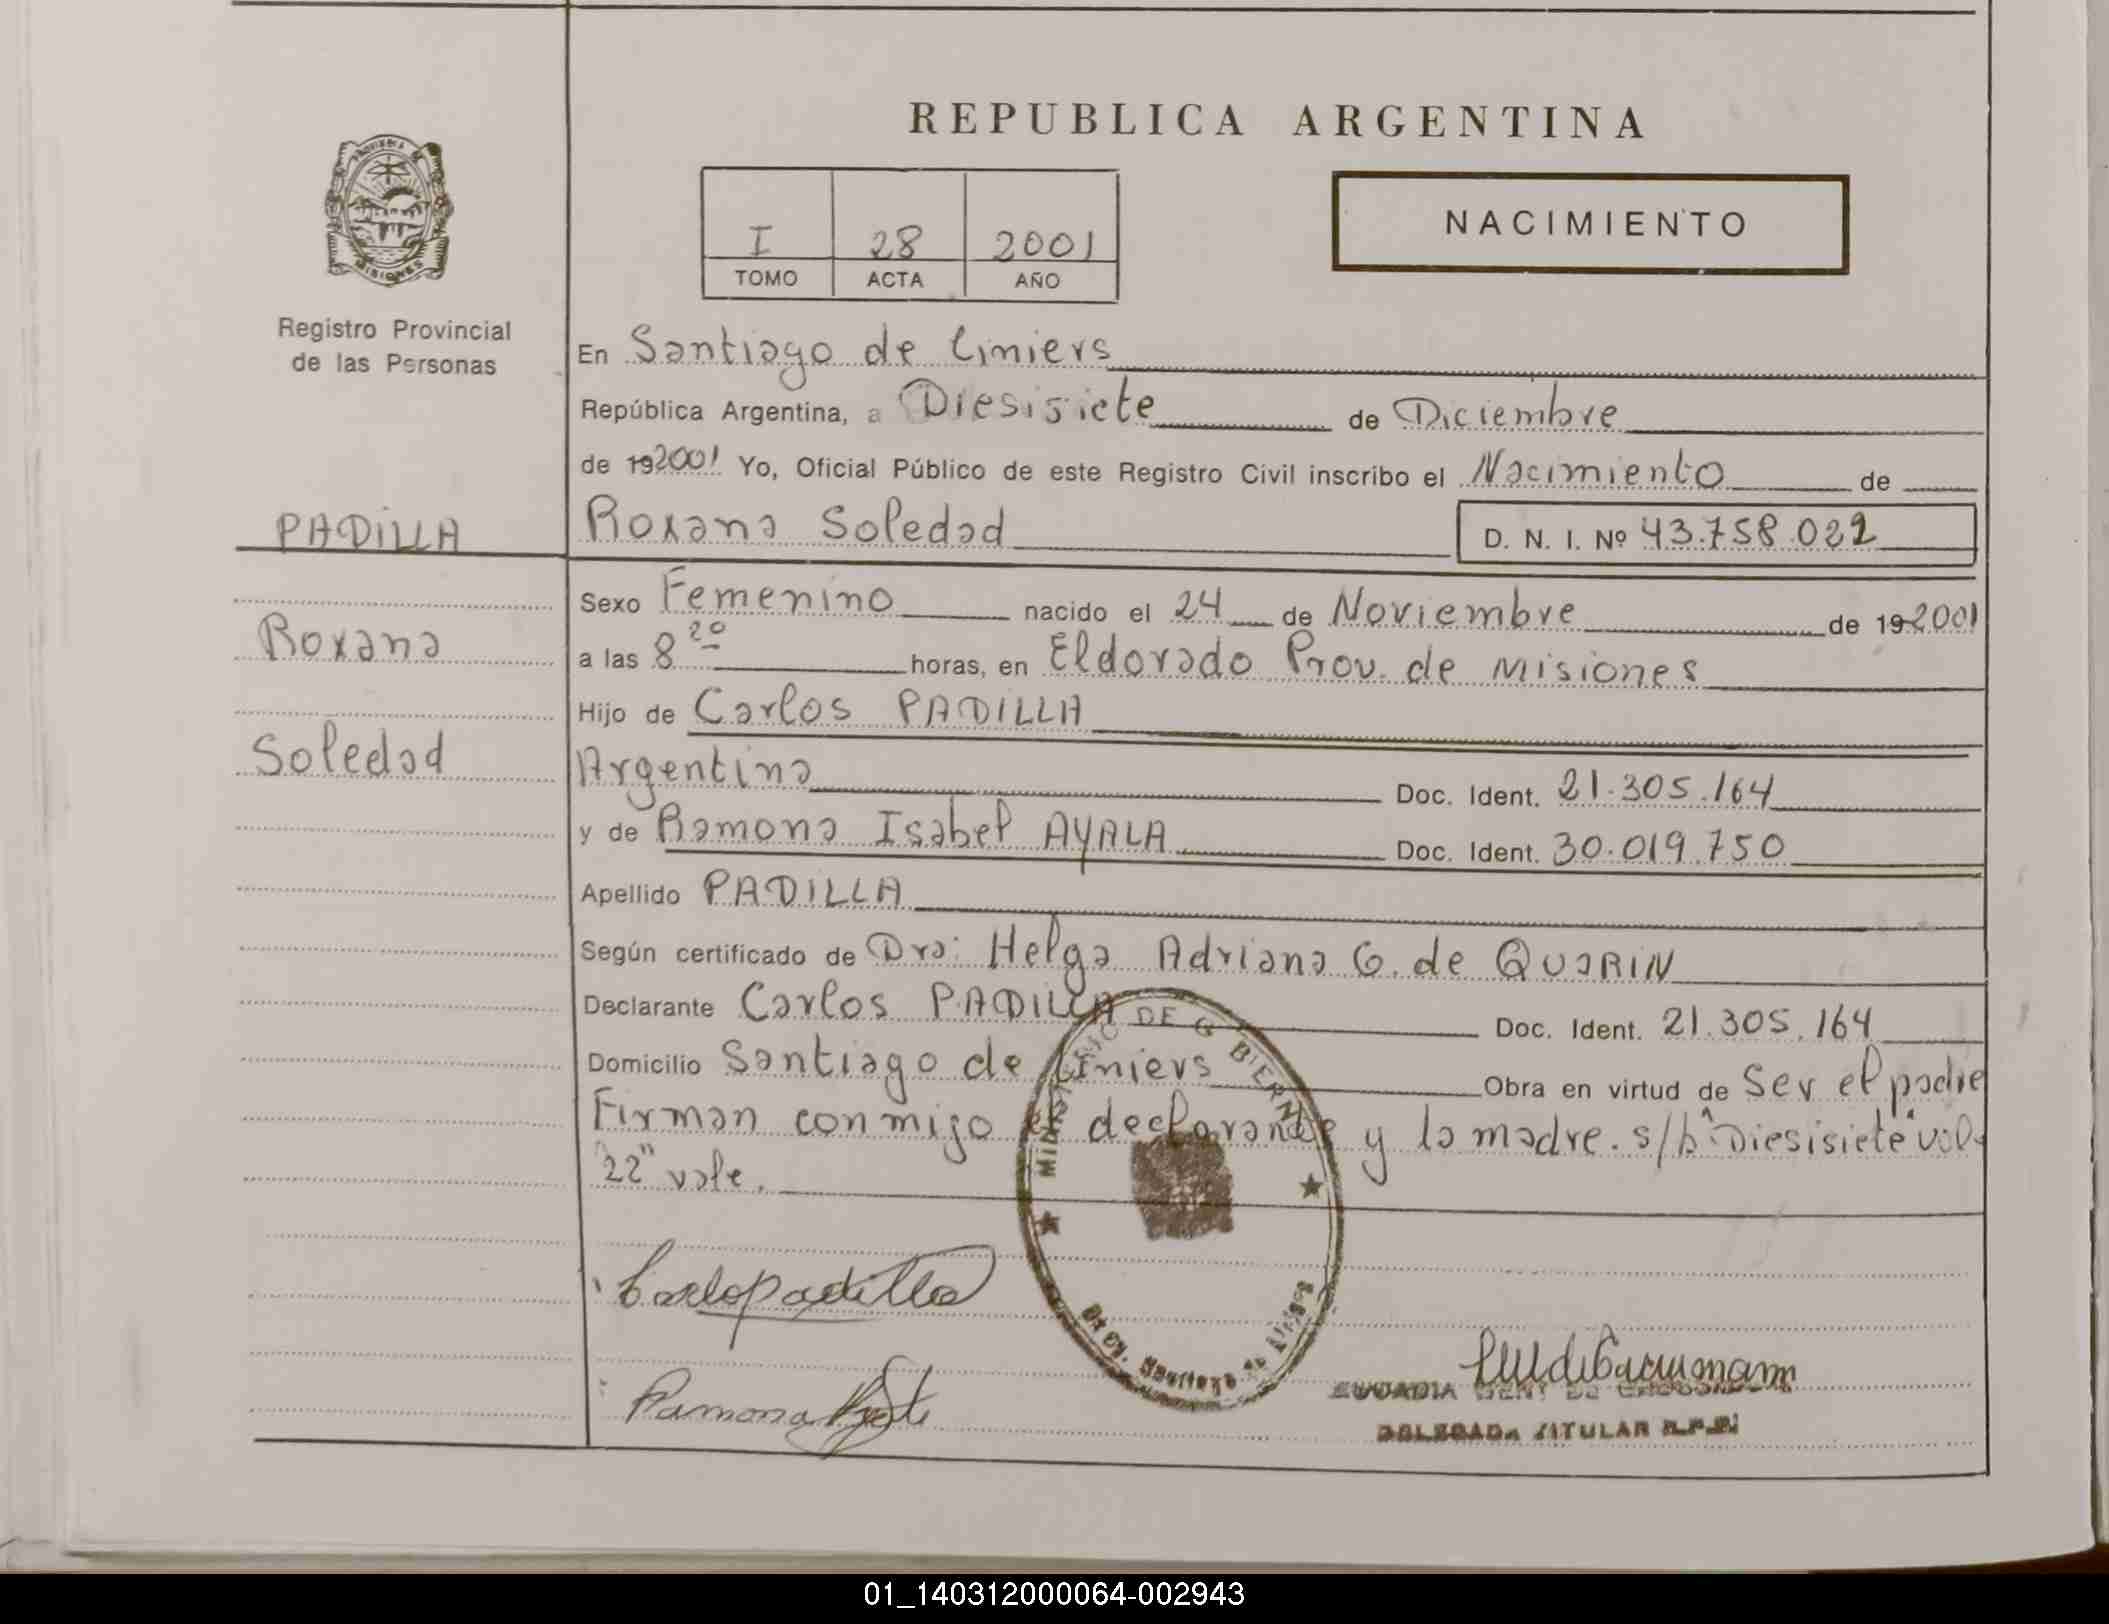 REPUBLICA ARGENTINA
PROVINCIA DE
MISIONES
Registro Provincial
de las Personas
I 28 2001
TOMO ACTA AÑO
NACIMIENTO
En Santiago de Liniers
República Argentina, a Diesisiete de Diciembre
de 192001 Yo, Oficial Público de este Registro Civil inscribo el Nacimiento de
PADILLA
Roxana Soledad D. N. I. Nº 43.758.022
Sexo Femenino nacido el 24 de Noviembre de 192001
Roxana
a las 8 20 horas, en Eldorado Prov. de Misiones
Hijo de Carlos PADILLA
Soledad
Argentina Doc. Ident. 21.305.164
y de Ramona Isabel AYALA Doc. Ident. 30.019.750
Apellido PADILLA
Según certificado de Dra: Helga Adriana G. de QUARIN
Declarante Carlos PADILLA Doc. Ident. 21.305.164
Domicilio Santiago de Liniers Obra en virtud de Ser el padre
Firman conmigo el declarante y la madre. s/b "Diesisiete" vale
"22" vale.
MINISTERIO DE GOBIERNO
Carlos Padilla
Ramona
DELEGADA TITULAR R.P.P.
01_140312000064-002943